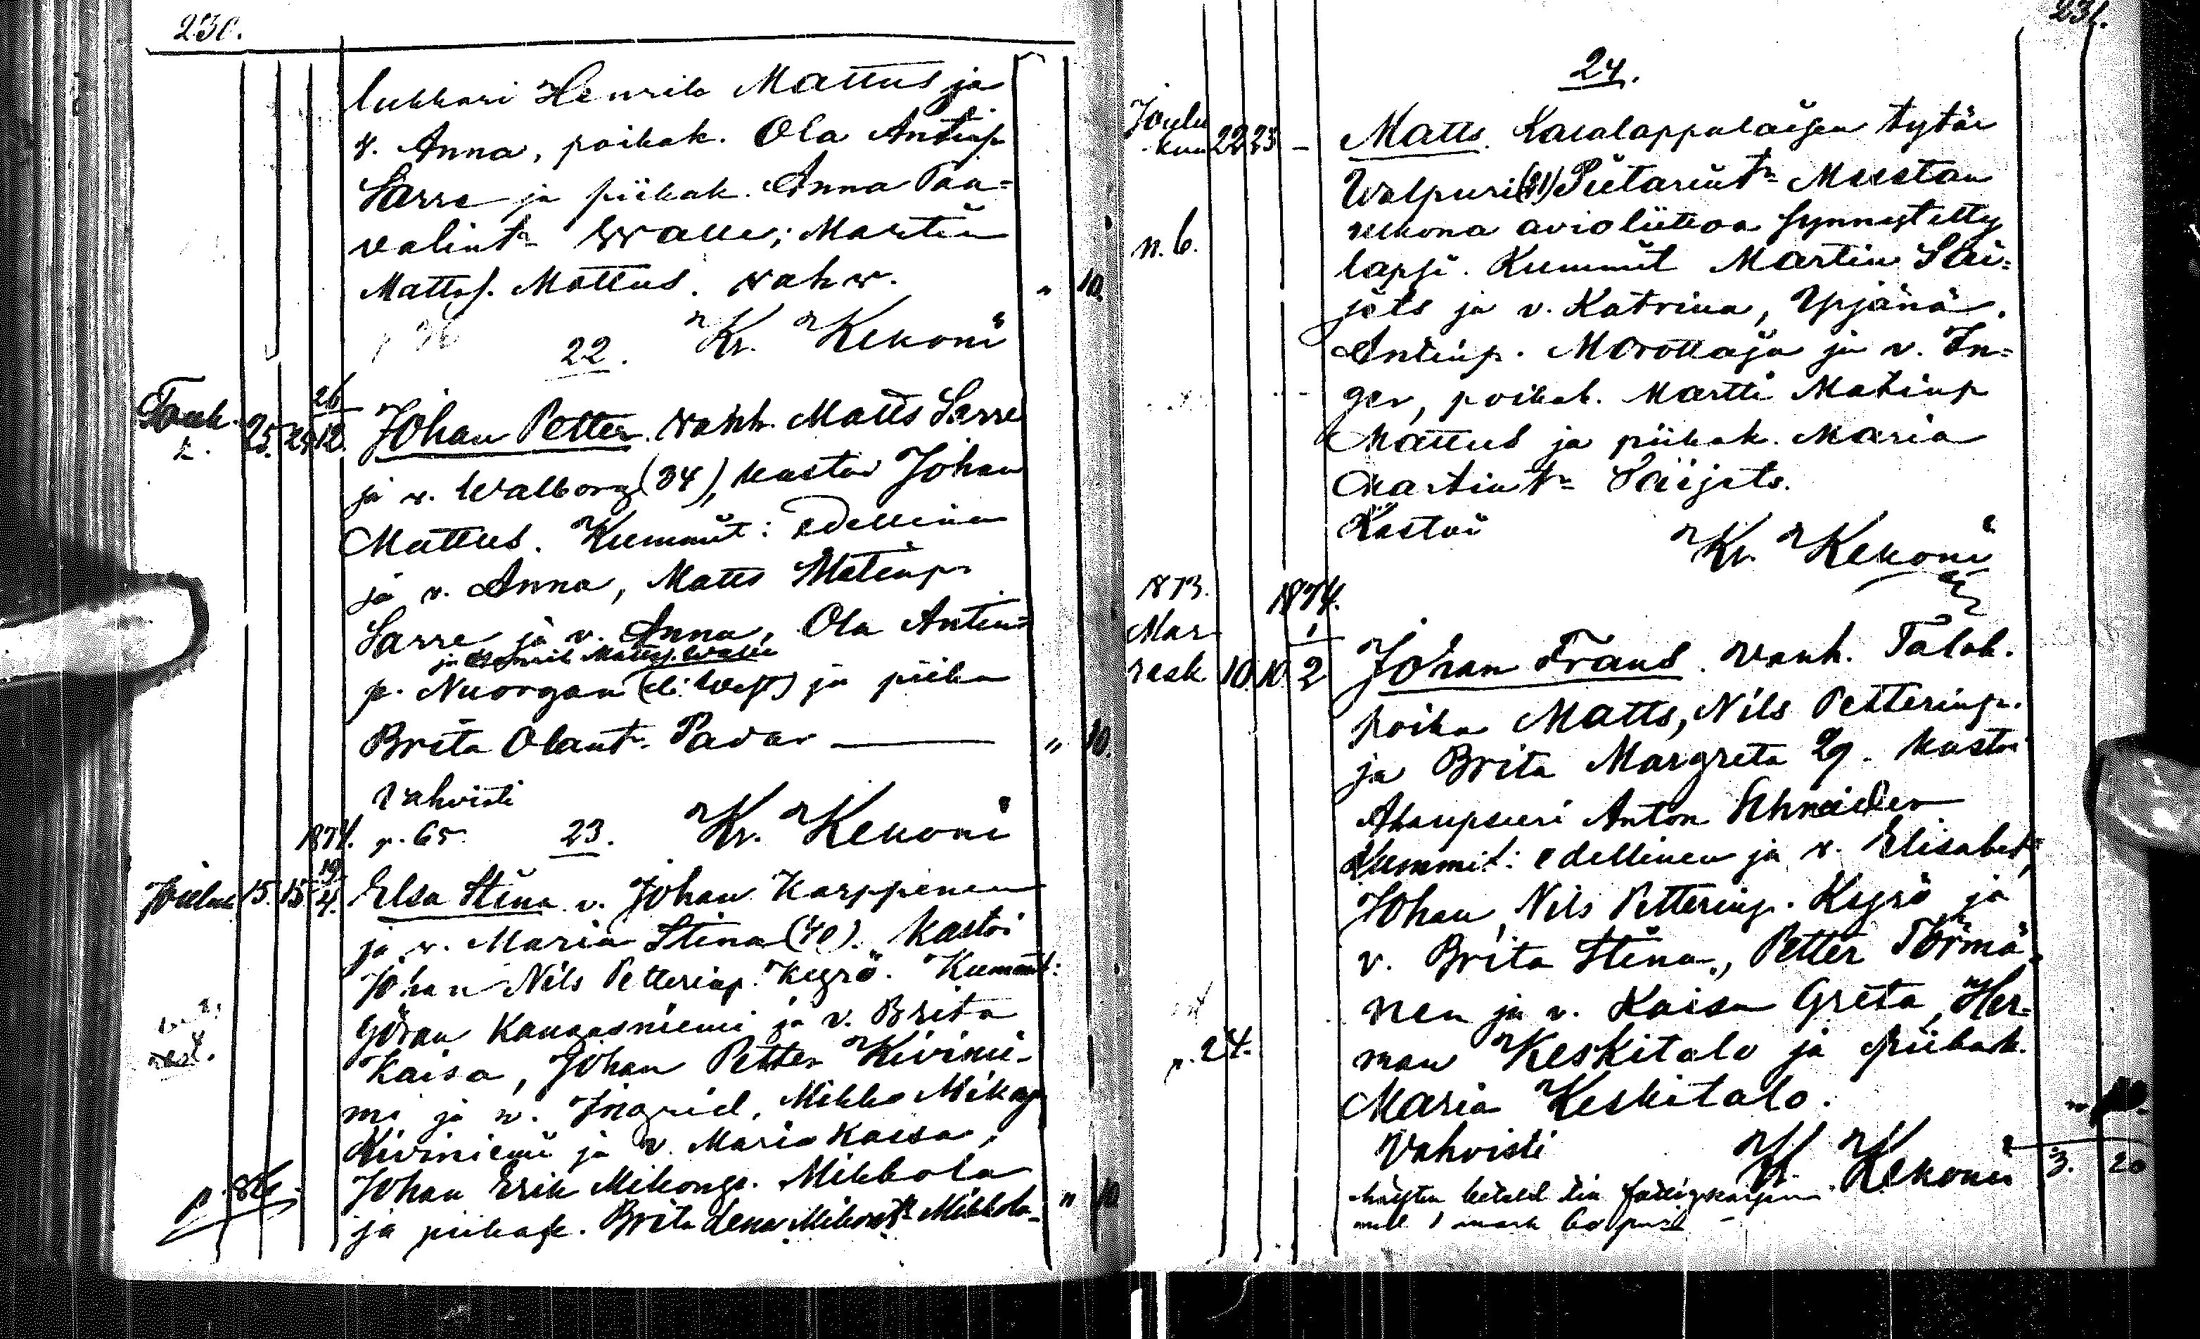 230.
lukkari Henrik Mattus ja
v. Anna, poikak. Ola Antinp.
Sarre ja piikak. Anna Paa=
valint. Walle; Martin
Mattsp. Mattus. vahv.
" 10.
22. Kr. Kekoni
Touk. 25. 26/12.
Johan Petter. vanh. Matts Sarre
ja v. Walborg (34), kastoi Johan
Mattus. Kummit: edellinen
ja v. Anna, Matts Matinp.
Sarre ja v. Anna, Ola Antin=
ja Henrik Mattsp. Walle
p. Nuorgan ja piika
Brita Olant. Padar —
" 10.
Vahvisti
1874. p. 65. 23. Kr. Kekoni
Joulu 15. 15 19/4.
Elsa Stina. v. Johan Karppinen
ja v. Maria Stina (40). Kastoi
Johan Nils Petterinp. Kyrö. Kummit:
Göran Kangasniemi ja v. Brita
Kaisa, Johan Petter Kivinie-
mi ja v. Ingrid, Mikko Mikonp.
Kiviniemi ja v. Maria Kaisa,
Johan Erik Mikonp. Mikkola
p. 86.
ja piikak. Brita Lena Mikont. Mikkola
" 10
231.
24.
Joulu
kuu 22 23 –
Matts. Kalalappalaisen tytär
Walpuri (31) Pietarint. Mustan
ulkona avioliittoa synnytetty
n. 6.
lapsi. Kummit Martin Sai=
jets ja v. Katrina, Yrjänä
Antinp. Morottaja ja v. In=
ger, poikak. Martti Matinp
Mattus ja piikak. Maria
Martint. Saijets.
Kastoi
Kr. Kekoni
1873. 1874.
Mar
rask 10. 10. 1/2
Johan Frans. vanh. Talok.
poika Matts, Nils Petterinp.
ja Brita Margreta 29. kastoi
Anton Schneider
Kummit: edellinen ja v. Elisabet,
Johan, Nils Petterinp. Kyrö ja
v. Brita Stina, Petter Törmä=
nen ja v. Kaisa Greta, Her-
p. 24.
man Keskitalo ja piikak.
Maria Keskitalo.
" 10.
Vahvisti
Kr. Kekoni
3. 20
mark 60